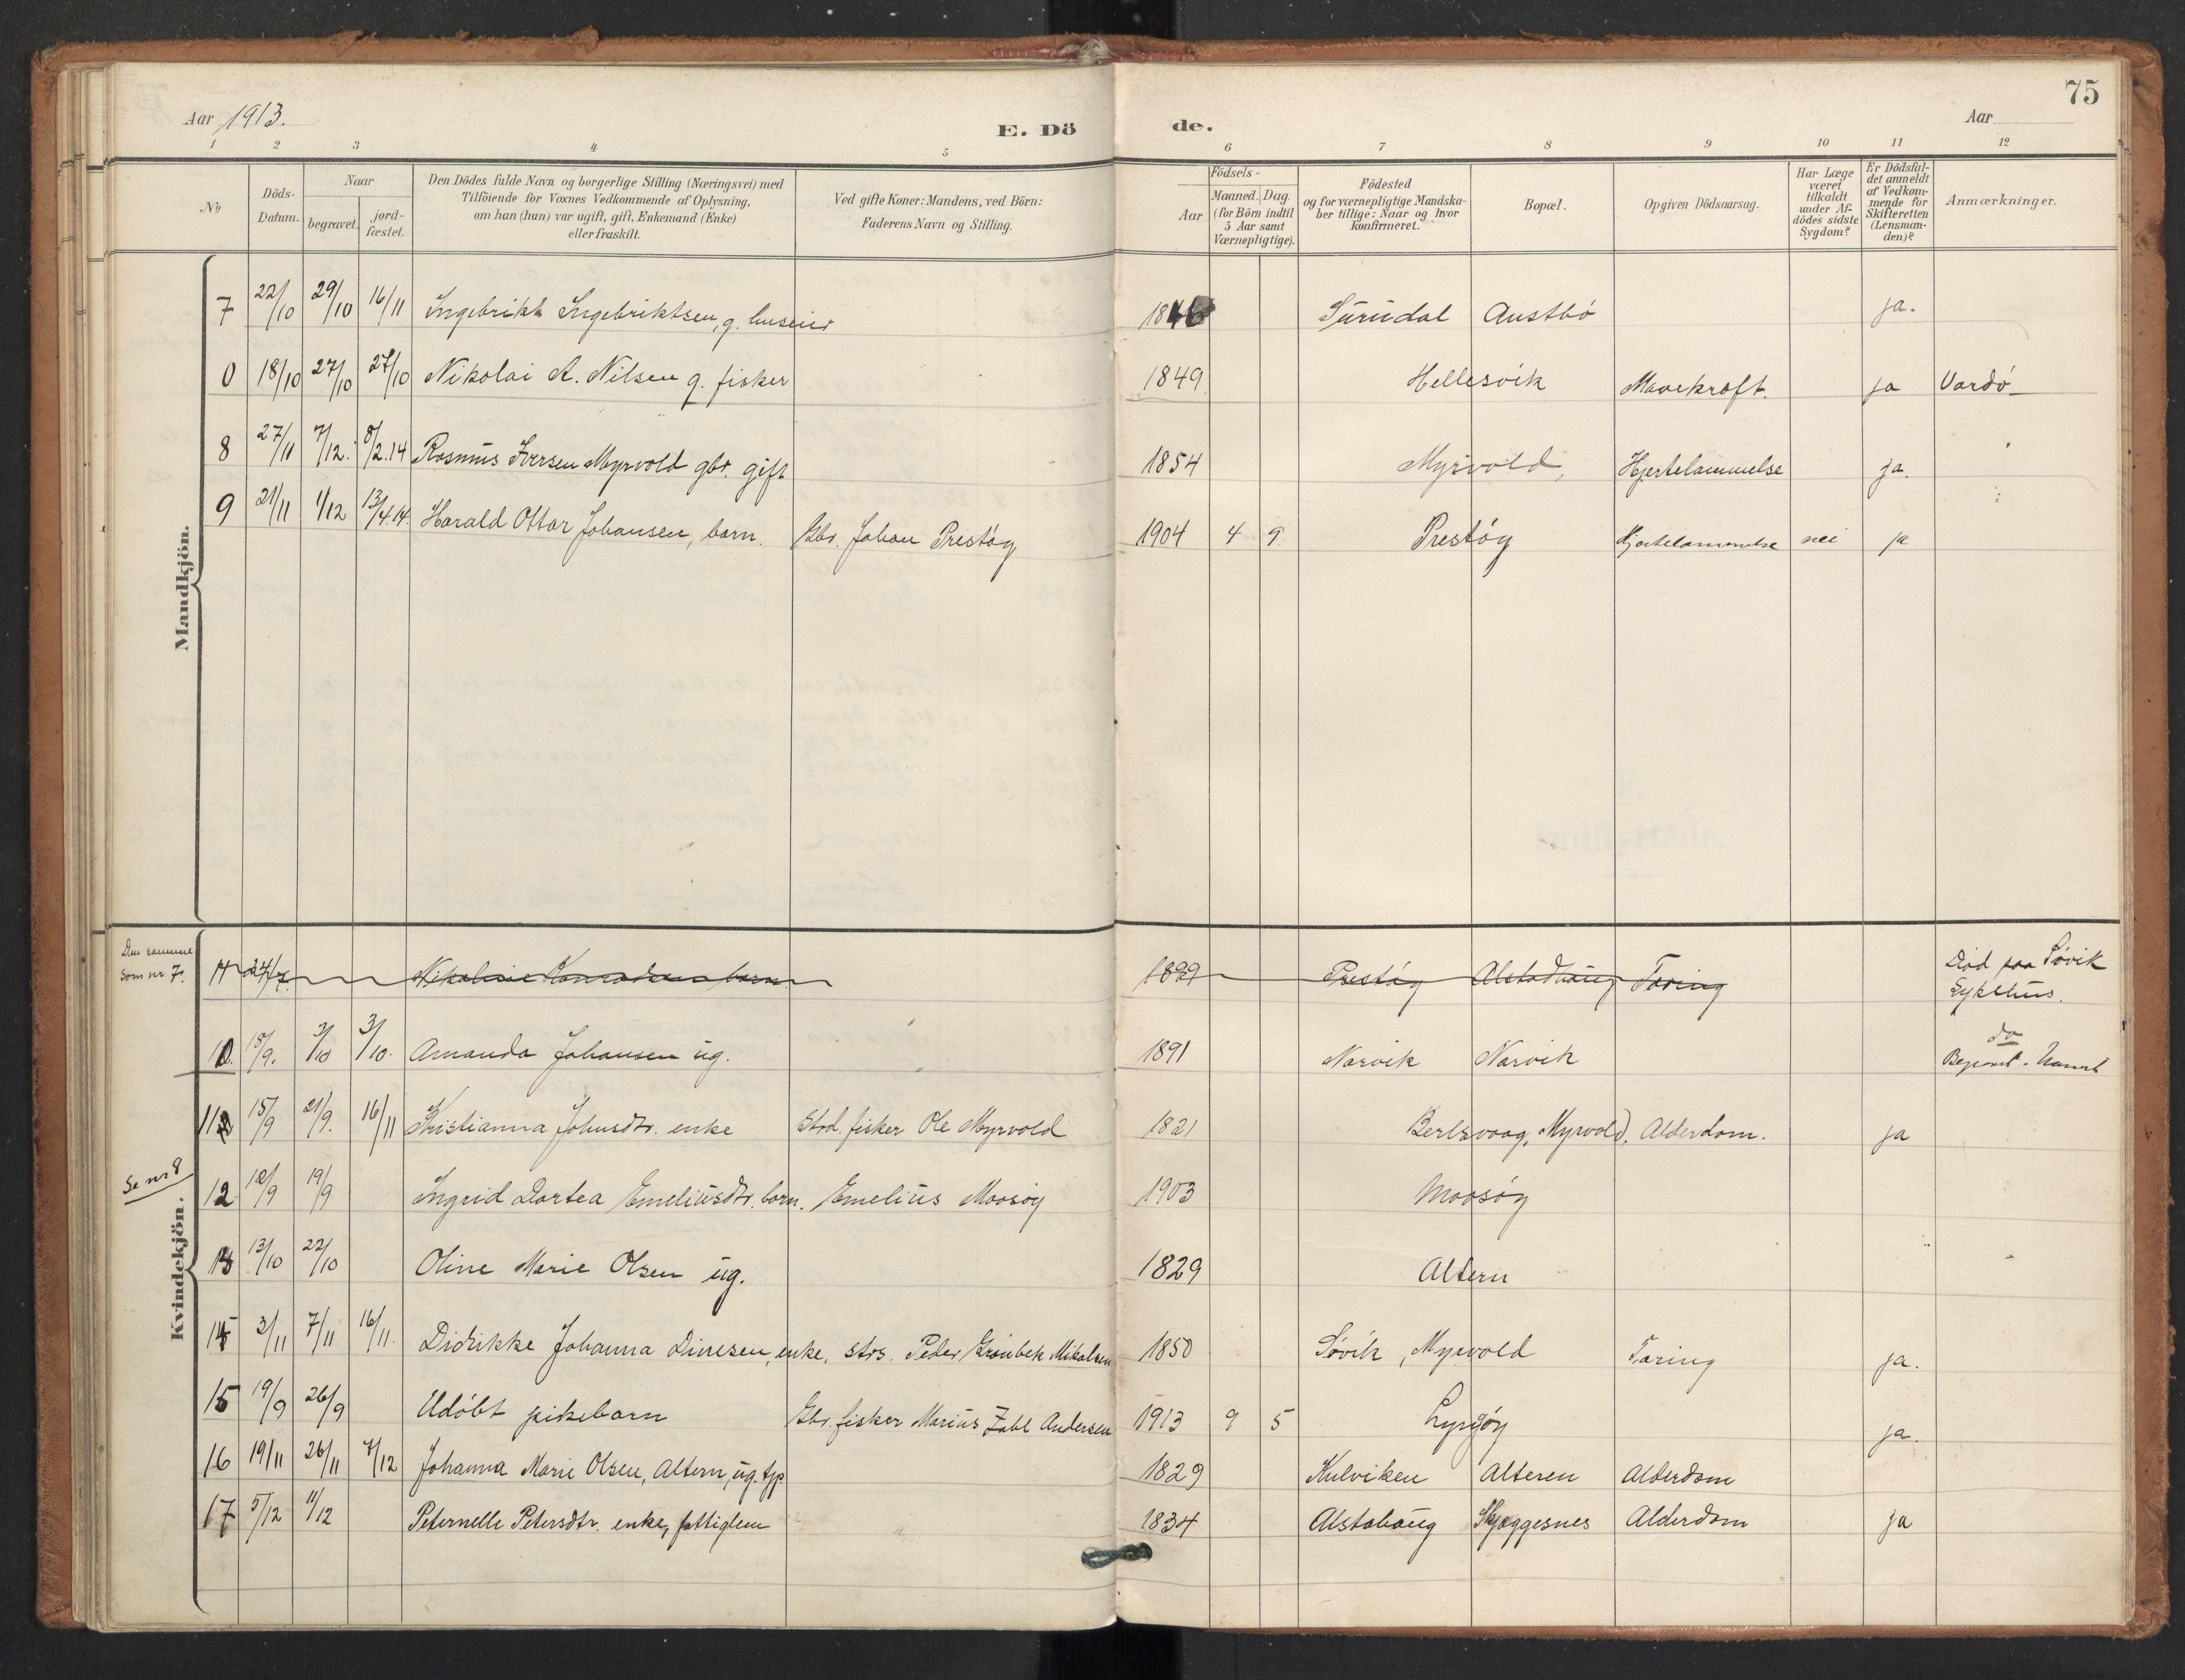 75
Aar 1913.
E. Dö
de.
Aar
1 2 3 4 5 6 7 8 9 10 11 12
No
Döds-Datum.
Naar
begravet.
jord-fæstet.
Den Dödes fulde Navn og borgerlige Stilling (Næringsvei) med
Tilföiende for Voxnes Vedkommende af Oplysning,
om han (hun) var ugift, gift, Enkemand (Enke)
eller fraskilt.
Ved gifte Koner: Mandens, ved Börn:
Faderens Navn og Stilling.
Födsels-
Aar
Maaned. Dag.
(for Börn indtil
5 Aar samt
Værnepligtige).
Födested
og for værnepligtige Mandska-
ber tillige: Naar og hvor
konfirmeret.
Bopæl.
Opgiven Dödsaarsag.
Har Læge
været
tilkaldt
under Af-
dödes sidste
Sygdom?
Er Dödsfal-
det anmeldt
af Vedkom-
mende for
Skifteretten
(Lensman-
den)?
Anmærkninger.
Mandkjön.
7 22/10 29/10 16/11 Ingebrikt Ingebriktsen, g. huseier 1846 Surudal Austbö ja.
0 18/10 27/10 27/10 Nikolai A. Nilsen g. fisker 1849 Hellesvik Mavekræft. ja Vardö
8 27/11 7/12. 8/2.14 Rasmus Iversen Myrvold gbr. gift 1854 Myrvold, Hjertelammelse ja.
9 21/11 1/12 13/4.14. Harald Ottar Johansen, barn. Gbr. Johan Prestöy 1904 4 9 Prestöy Hjertelammelse nei ja
Kvindekjön.
Den samme
som nr 7.
11 24/7 Nikoline Konradsen barn 1899 Prestöy Alstadhaug Tæring Död paa Søvik
Sykehus.
10 15/9. 3/10 3/10. Amanda Johansen ug. 1891 Narvik Narvik do
11 15/9 21/9. 16/11 Kristianna Johnsdtr. enke Strd. fisker Ole Myrvold 1821 Berlsvaag, Myrvold, Alderdom. ja
Se nr 8
12 12/9 19/9 Ingrid Dortea Emeliusdtr. barn. Emelius Moosöy 1903 Moosöy
13 13/10 22/10 Oline Marie Olsen ug. 1829 Altern
14 3/11 7/11 16/11. Didrikke Johanna Dinesen, enke, strs. Peder Grönbek Mikalsen 1850 Søvik, Myrvold Tæring ja.
15 19/9 26/9 Udöbt pikebarn Gbr. fisker Marius Zahl Andersen 1913 9 5 Lyngöy ja.
16 19/11 26/11 7/12 Johanna Marie Olsen, Altern, ug. tjp. 1829 Kulviken Alteren Alderdom
17 5/12 11/12 Peternelle Petersdtr. enke, fattiglem 1834 Alstahaug Skjeggesnes Alderdom ja